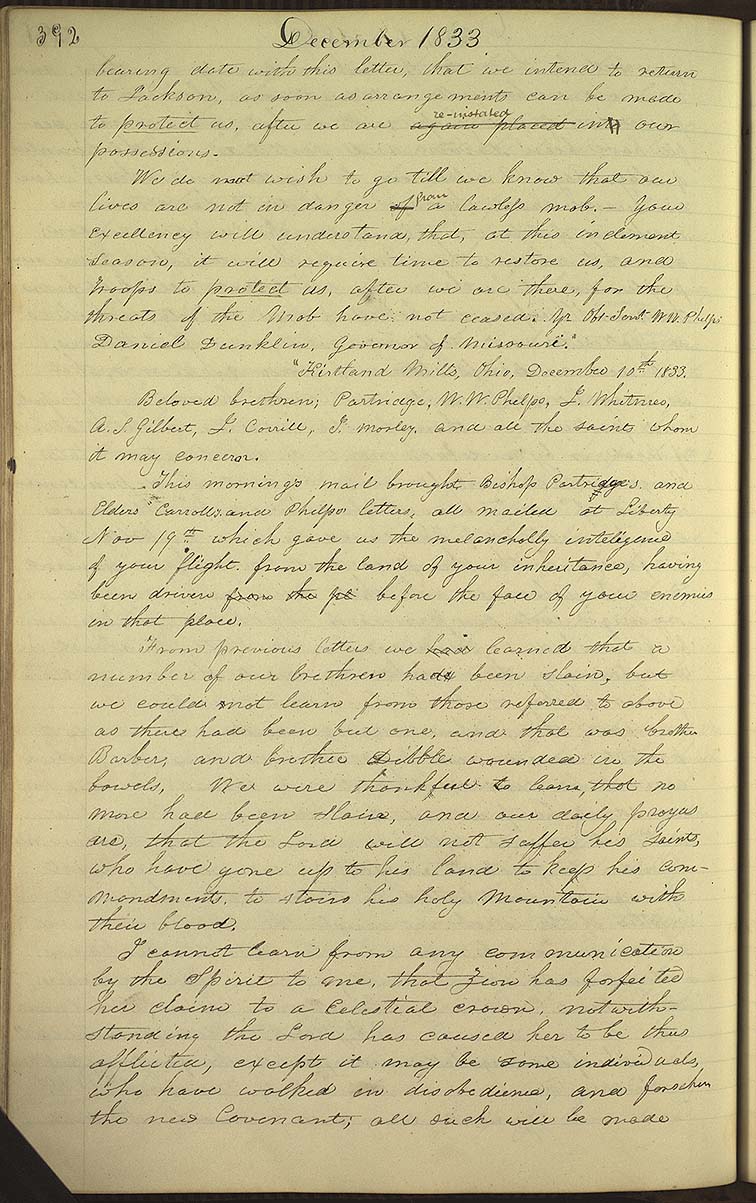 392 December 1833
bearing date with this letter, that we intend to return
to Jackson, as soon as arrangements can be made
to protect us, after we are again placed re-instated into our
possessions.
We do not wish to go till we know that our
lives are not in danger of from a lawless mob.— Your
Excellency will understand, that, at this inclement
Season, it will require time to restore us, and
troops to protect us, after we are there, for the
threats of the Mob have not ceased. Yr Obt Servt. W. W. Phelps
Daniel Dunklin, Governor of Missouri."
"Kirtland Mills, Ohio, December 10th 1833.
Beloved brethren; Partridge, W. W. Phelps, J. Whitmer,
A. S. Gilbert, J. Corrill, I. Morley, and all the saints whom
it may concern.
This morning's mail brought Bishop Partridge's and
Elders Carroll's and Phelps letters, all mailed at Liberty
Nov 19th which gave us the melancholly inteligence
of your flight from the land of your inheritance, having
been driven from the pl before the face of your enemies
in that place.
From previous letters we had learned that a
number of our brethren had been slain, but
we could not learn from those referred to above
as there had been but one, and that was brother
Barber, and brother Dibble wounded in the
bowels, We were thankful to learn, that no
more had been slain, and our daily prayers
are, that the Lord will not suffer his Saints,
who have gone up to his land to keep his com-
mandments, to stain his holy Mountain with
their blood.
I cannot learn from any communication
by the Spirit to me, that Zion has forfeited
her claim to a Celestial crown, notwith-
standing the Lord has caused her to be thus
afflicted, except it may be some individuals,
who have walked in disobedience, and forsaken
the new Covenant; all such will be made